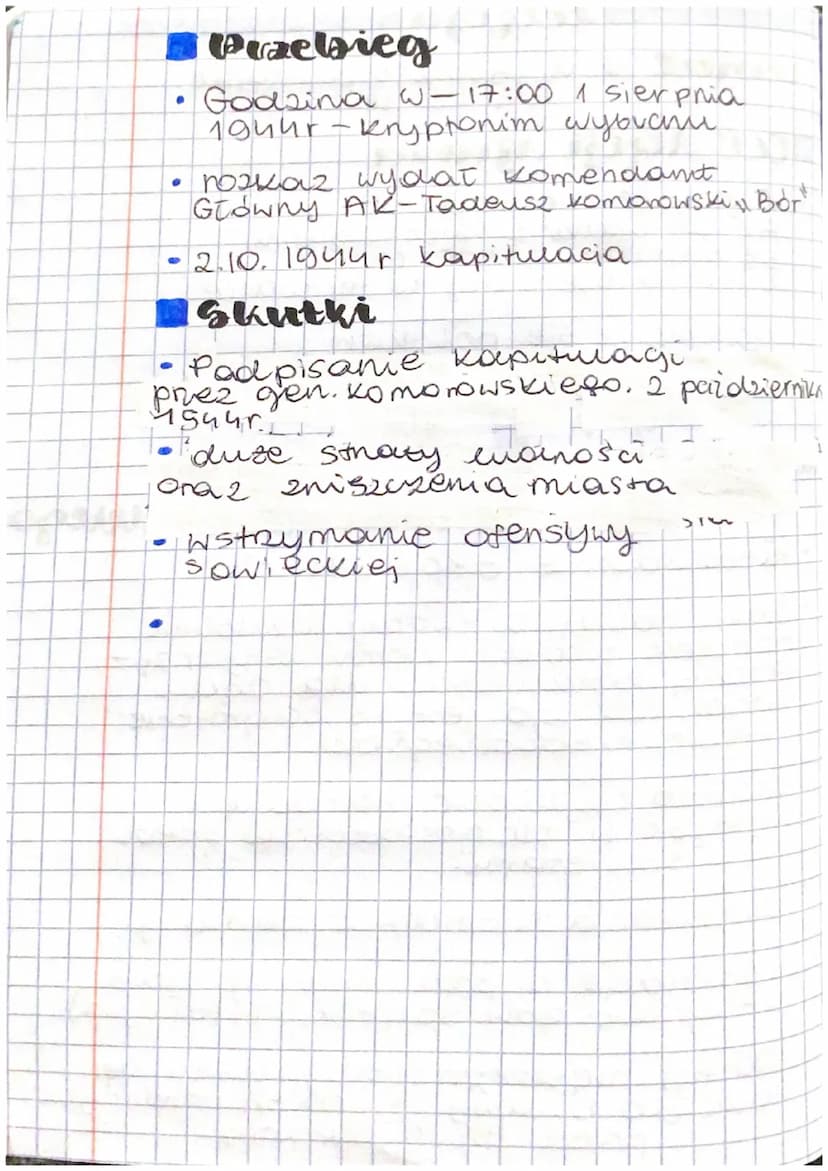 Przebieg
• Godzina W – 17:00 1 sierpnia
1944r – kryptonim wybuchu
• rozkaz wydał komendant
Główny AK – Tadeusz Komorowski „Bór"
• 2.10. 1944r kapitulacja
Skutki
• Podpisanie kapitulacji
przez gen. Komorowskiego. 2 października
1944r.
• duże straty ludności
oraz zniszczenia miasta
• wstrzymanie ofensywy
sowieckiej
•